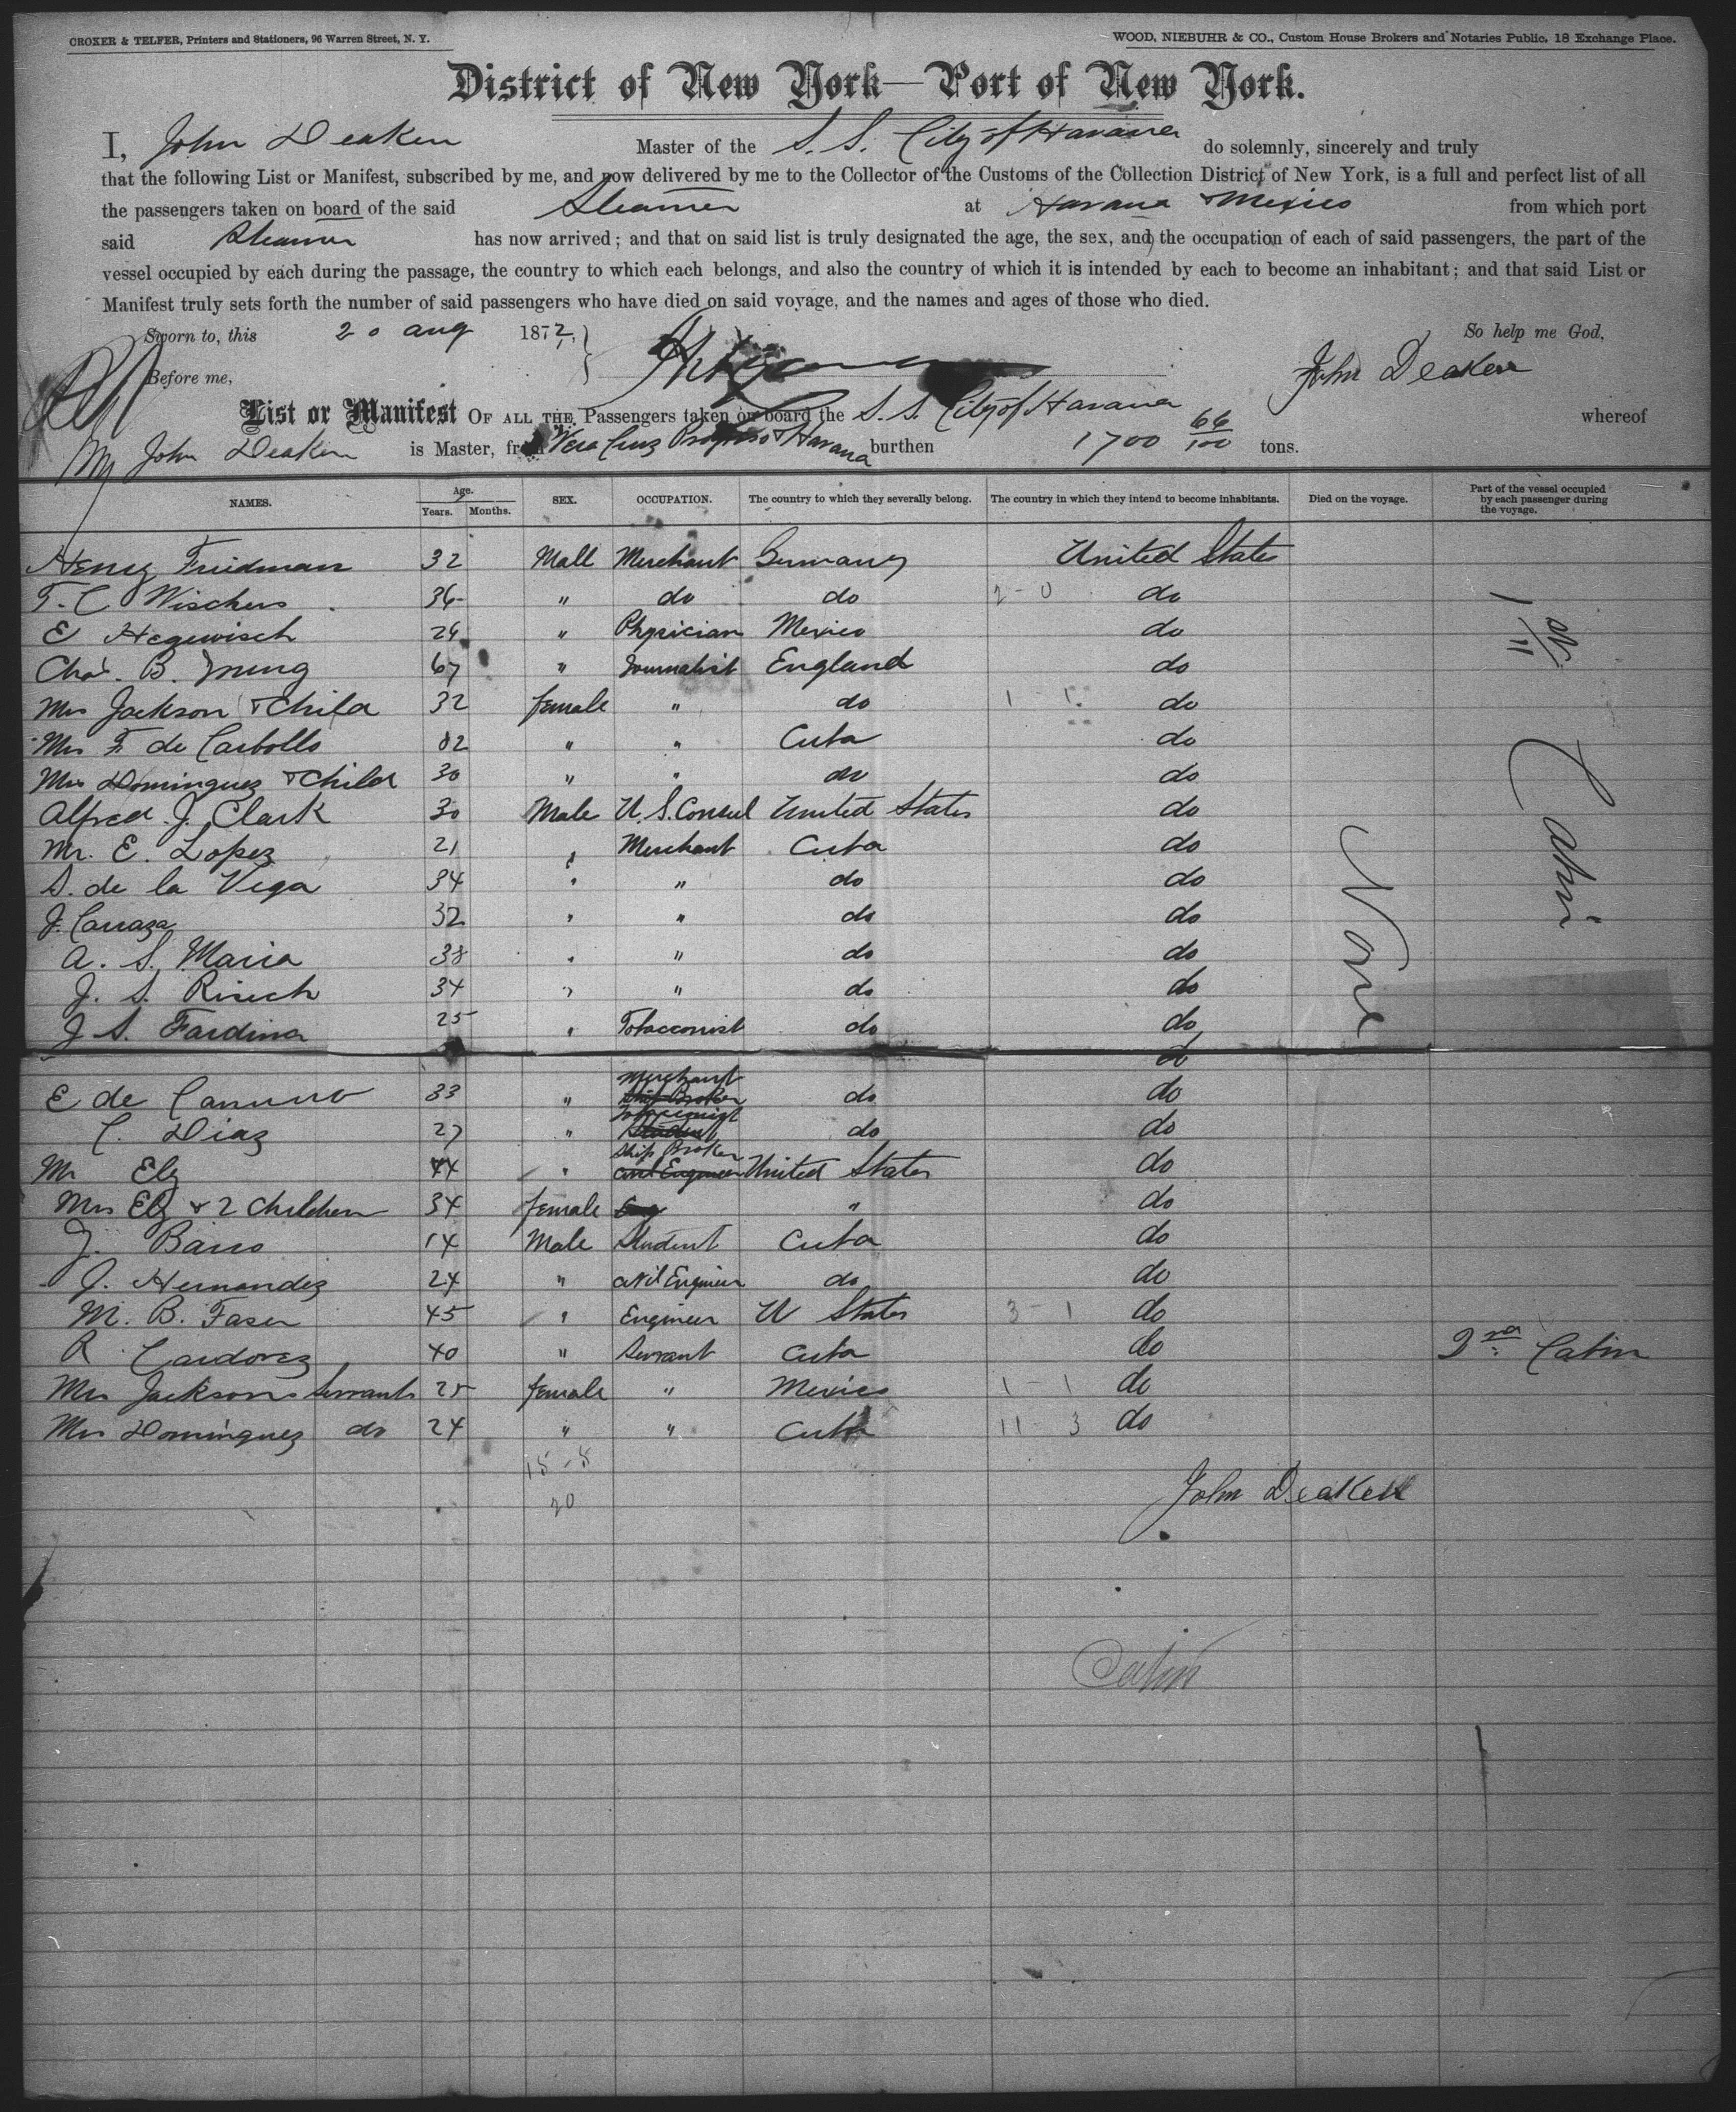 CROKER & TELFER, Printers and Stationers, 96 Warren Street, N. Y.
WOOD, NIEBUHR & CO., Custom House Brokers and Notaries Public, 18 Exchange Place.
District of New York—Port of New York.
I, John Deaken Master of the S. S. City of Havana do solemnly, sincerely and truly
that the following List or Manifest, subscribed by me, and now delivered by me to the Collector of the Customs of the Collection District of New York, is a full and perfect list of all
the passengers taken on board of the said Steamer at Havana & Mexico from which port
said Steamer has now arrived; and that on said list is truly designated the age, the sex, and the occupation of each of said passengers, the part of the
vessel occupied by each during the passage, the country to which each belongs, and also the country of which it is intended by each to become an inhabitant; and that said List or
Manifest truly sets forth the number of said passengers who have died on said voyage, and the names and ages of those who died.
Sworn to, this 20 aug 1872, So help me God,
Before me, John Deaken
List or Manifest OF ALL THE Passengers taken on board the S. S. City of Havana whereof
John Deaken is Master, from Vera Cruz Progreso & Havana burthen 1700 66/100 tons.
NAMES. Age. Years. Months. SEX. OCCUPATION. The country to which they severally belong. The country in which they intend to become inhabitants. Died on the voyage. Part of the vessel occupied by each passenger during the voyage.
Henry Friedman 32 Male Merchant Germany United States
T. C. Wischers 36 " do do 2-0 do
E Hegewisch 26 " Physician Mexico do
Chas. B. 67 " Journalist England do
Mrs Jackson & Child 32 female " do 1 1 do
Mrs F. de Carbollo 82 " " Cuba do
Mrs Dominguez & Child 30 " " do do
Alfred J. Clark 30 Male U. S. Consul United States do
Mr. E. Lopez 21 " Merchant Cuba do
S. de la Vega 34 " " do do
J. Carraza 32 " " do do
A. S. Maria 38 " " do do
J. S. Risech 34 " " do do
J S. Fardina 25 " Tobacconist do do
do
E de 33 " Merchant Ship Broker do do
C. Diaz 27 " Tobacconist Student do do
Mr Ely 44 " Ship Broker civil Engineer United States do
Mrs Ely & 2 Children 34 female " do
J. Barro 14 Male Student Cuba do
J. Hernandez 24 " civil Engineer do do
M. B. Faser 45 " Engineer U States 3-1 do
R Cardovez 40 " Servant Cuba do 2nd Cabin
Mrs Jacksons Servants 25 female " Mexico 1-1 do
Mrs Dominguez do 24 " " Cuba 11-3 do
None
Cabin
15-8
20
John Deaken
Cabin